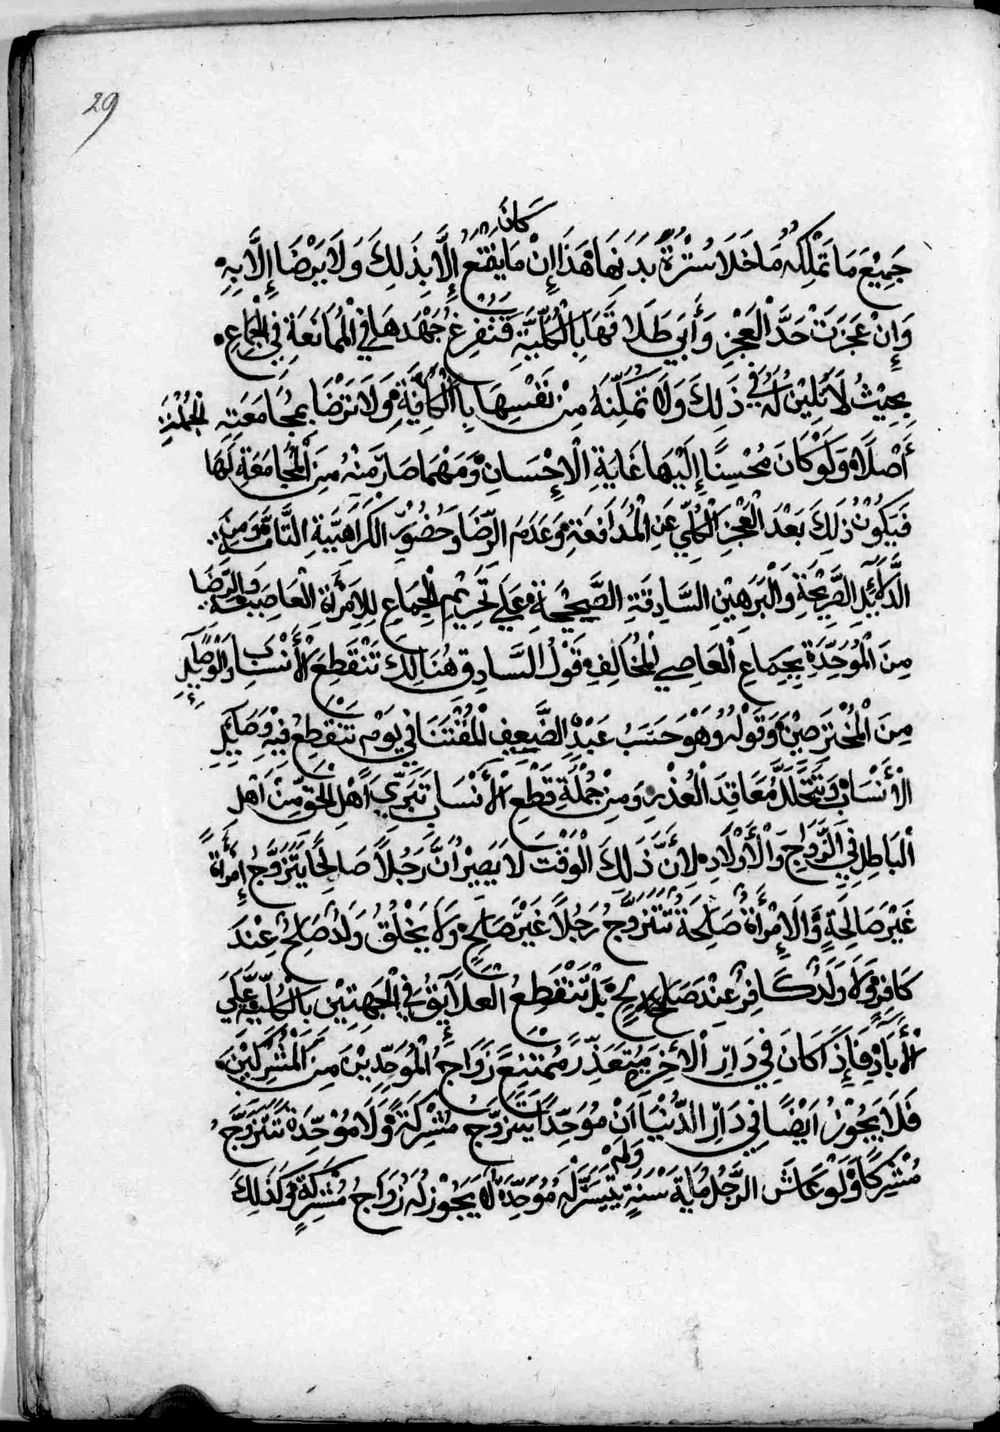 29
كان
جَمِيْعَ مَا تَمْلِكُهُ مَا خَلَا سُتْرَةُ بَدَنِهَا هَذَا إِنْ مَا يَقْنَعُ إِلَّا بِذَلِكَ وَلَا يَرْضَا إِلَّا بِهِ
وَإِنْ عَجَزَتْ حَدَّ الْعَجْزِ وَأَبَى طَلَاقَهَا بِالْكُلِّيَّةِ فَتَفْرِغُ جَهْدَهَا فِي الْمُمَانَعَةِ فِي الْجِمَاعِ
بِحَيْثُ لَا تَلِيْنُ لَهُ فِي ذَلِكَ وَلَا تُمَكِّنَهُ مِنْ نَفْسِهَا بِالْكَافِيَّةِ وَلَا تَرْضَا بِمُجَامَعَتِهِ الجُمْلَةِ
أَصْلًا وَلَوْ كَانَ مُحْسِنًا إِلَيْهَا غَايَةِ الْإِحْسَانِ وَمَهْمَا صَارَ مِنْهُ مِنَ الْمُجَامَعَةِ لَهَا
فَيَكُوْنُ ذَلِكَ بَعْدَ الْعَجْزِ الْكُلِّي عَنِ الْمُدَافَعَةِ وَعَدَمِ الرِّضَا وَحُضُوْرِ الْكَرَاهِيَّةِ التَّامَّةِ وَمِنَ
الدَّلَائِلِ الصَّرِيْحَةِ وَالْبَرَهِيْنِ السَّادِقَةِ الصَّحِيْحَةِ عَلَى تَحْرِيْمِ الْجِمَاعِ لِلِامْرَأَةِ الْعَاصِيَةِ وَالرِّضَا
مِنَ الْمُوَحِّدَةِ بِجِمَاعِ الْعَاصِي الْمُخَالِفِ قَوْلُ السَّادِقِ هُنَالِكَ تَنْقَطِعُ الْأَنْسَابُ وَالْوَصَايِلِ
مِنَ الْمُخْتَرِصِيْنَ وَقَوْلُهُ وَهُوَ حَسَبُ عَبْدِهِ الضَّعِيفِ الْمُقْتَنَا فِي يَوْمِ تَنْقَطِعُ فِيْهِ وَصَايِلِ
الْأَنْسَابِ وَتَتَحَلَّلُ مَعَاقِدَ الْعُذْرِ وَمِنْ جُمْلَةِ قَطْعِ الْأَنْسَابِ تَبَرِّي أَهْلِ الْحَقِّ مِنْ أَهْلِ
الْبَاطِلِ فِي الزَّوَاجِ وَالْأَوْلَادِ لِأَنَّ ذَلِكَ الْوَقْتَ لَا يَصِيْرُ أَنَّ رَجُلًا صَالِحًا يَتَزَوَّجُ إِمْرَأَةً
غَيْرَ صَالِحَةٍ وَلَا إِمْرَأَةً صَالِحَةً تَتَزَوَّجُ رَجُلًا غَيْرَ صَالِحٍ وَلَا يَخْلُقُ وَلَدٌ صَالِحٌ عِنْدَ
كَافِرٍ وَلَا وَلَدٌ كَافِرٌ عِنْدَ صَالِحٍ بَلْ تَنْقَطِعُ الْعَلَايِقُ فِي الْجَهِتِيْنِ بِالْكُلِّيَّةِ عَلَى
الْأَبَادْ فَإِذَا كَانَ فِي دَارِ الْأَخِرَهِ مُتَعَذِّرْ مُمْتَنِعْ زَوَاجُ الْمُوَحِّدِيْنَ مِنَ الْمُشْرِكِيْنَ
فَلَا يَجُوْزُ أَيْضًا فِي دَارِ الدُّنْيَا أَنْ مُوَحِّدًا يَتَزَوَّجُ مُشْرِكَةً وَلَا مُوَحِّدَةً تَتَزَوَّجُ
مُشْرِكًا وَلَوْ عَاشَ الرَّجُلُ مَايَةَ سَنَةٍ وَلَمْ يَتَيَسَّرْ لَهُ مُوَحِّدَةً لَا يَجُوْزُ لَهُ زَوَاجُ مُشْرِكَةٍ وَكَذَلِكَ